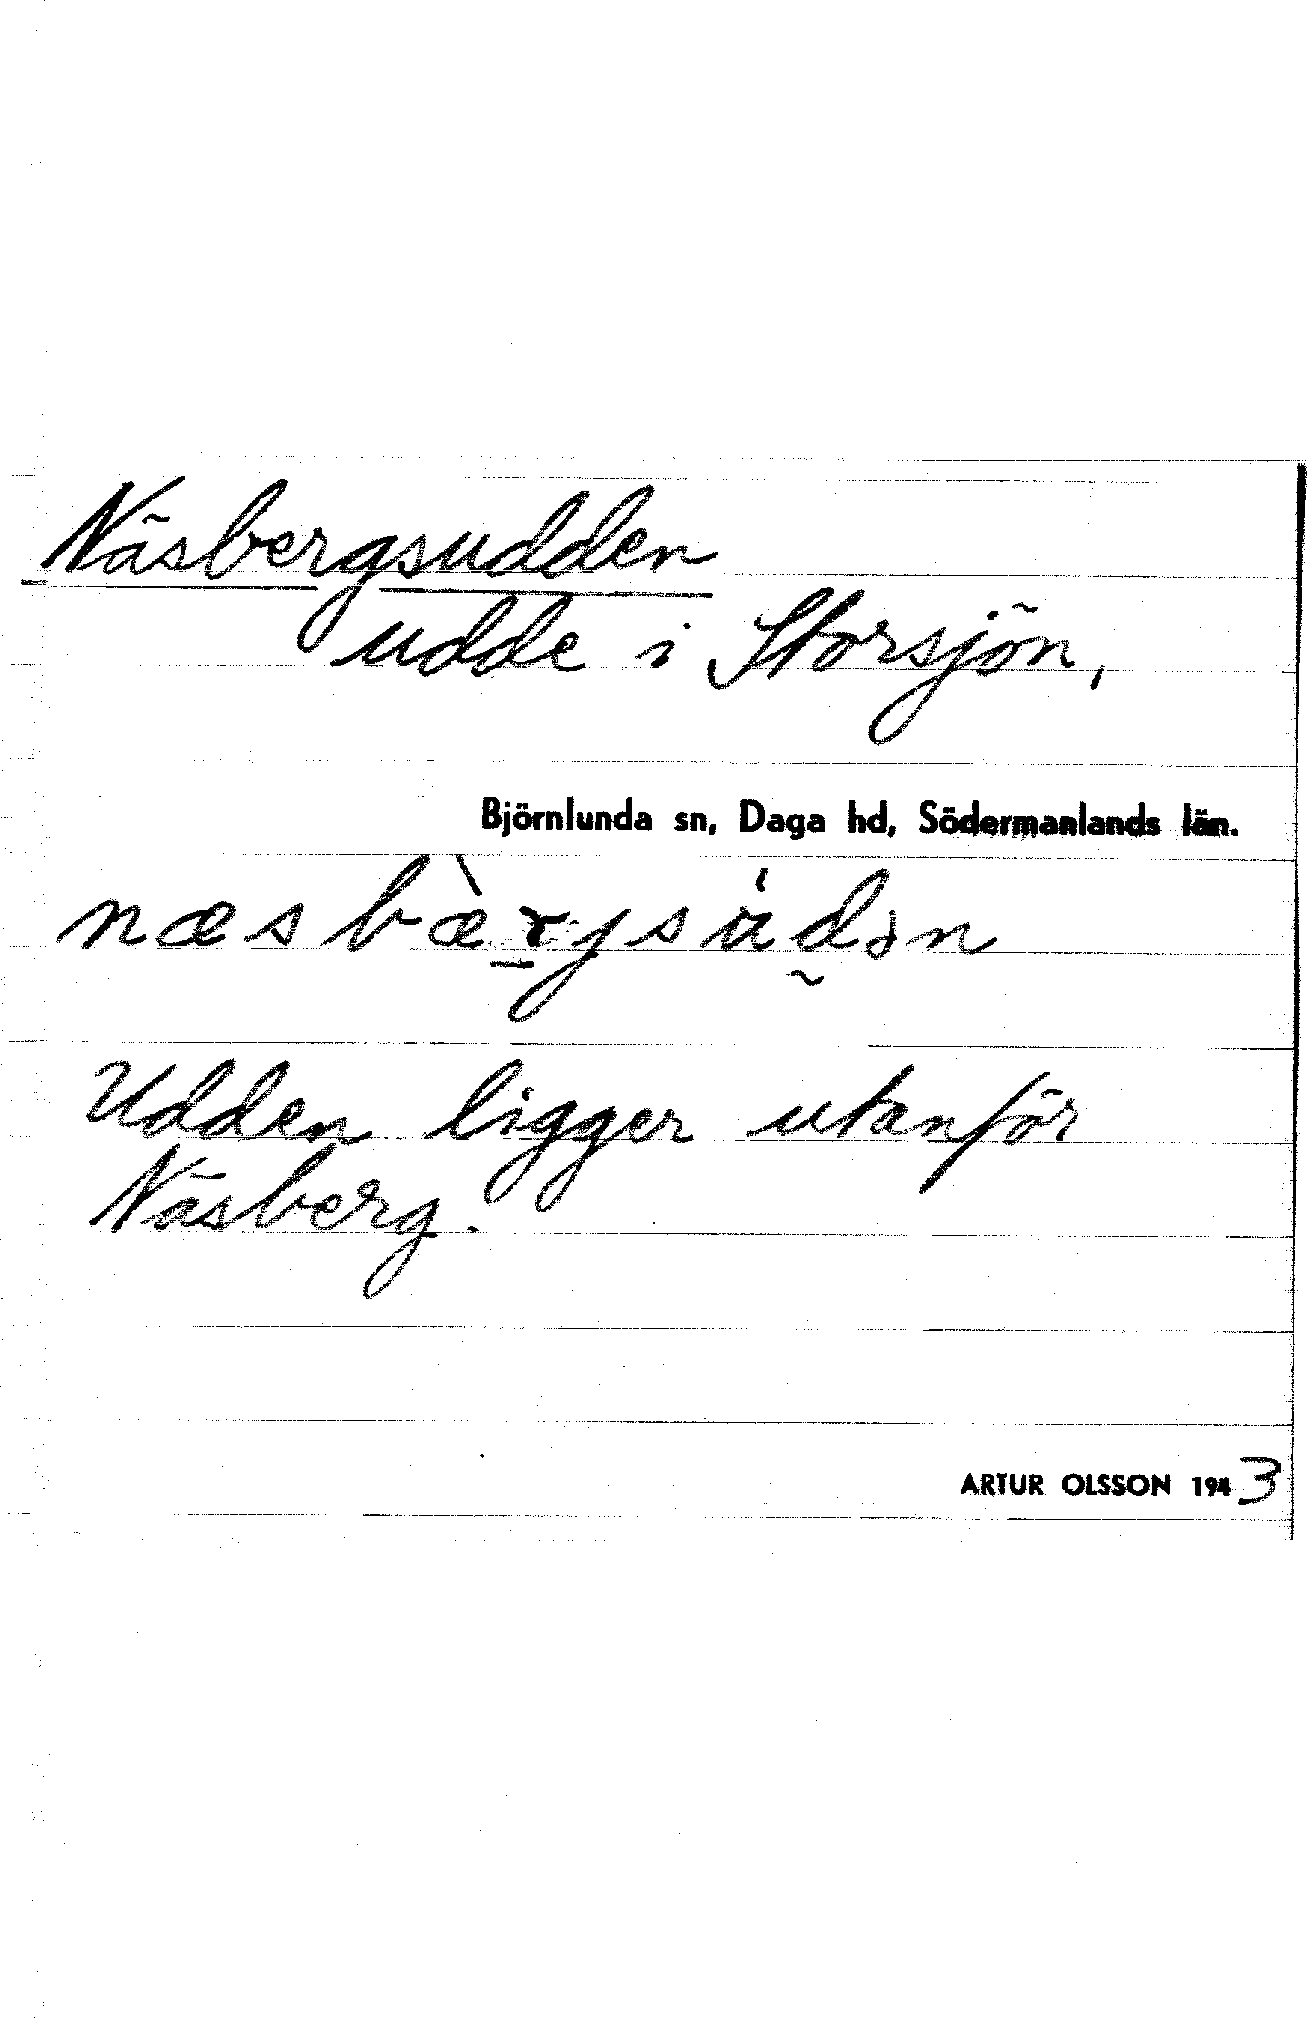 Näsbergsudden
udde i Storsjön,
Björnlunda sn, Daga hd, Södermanlands län.
næsbæ̀rjsùdən
Udden ligger utanför
Näsberg.
ARTUR OLSSON 1943